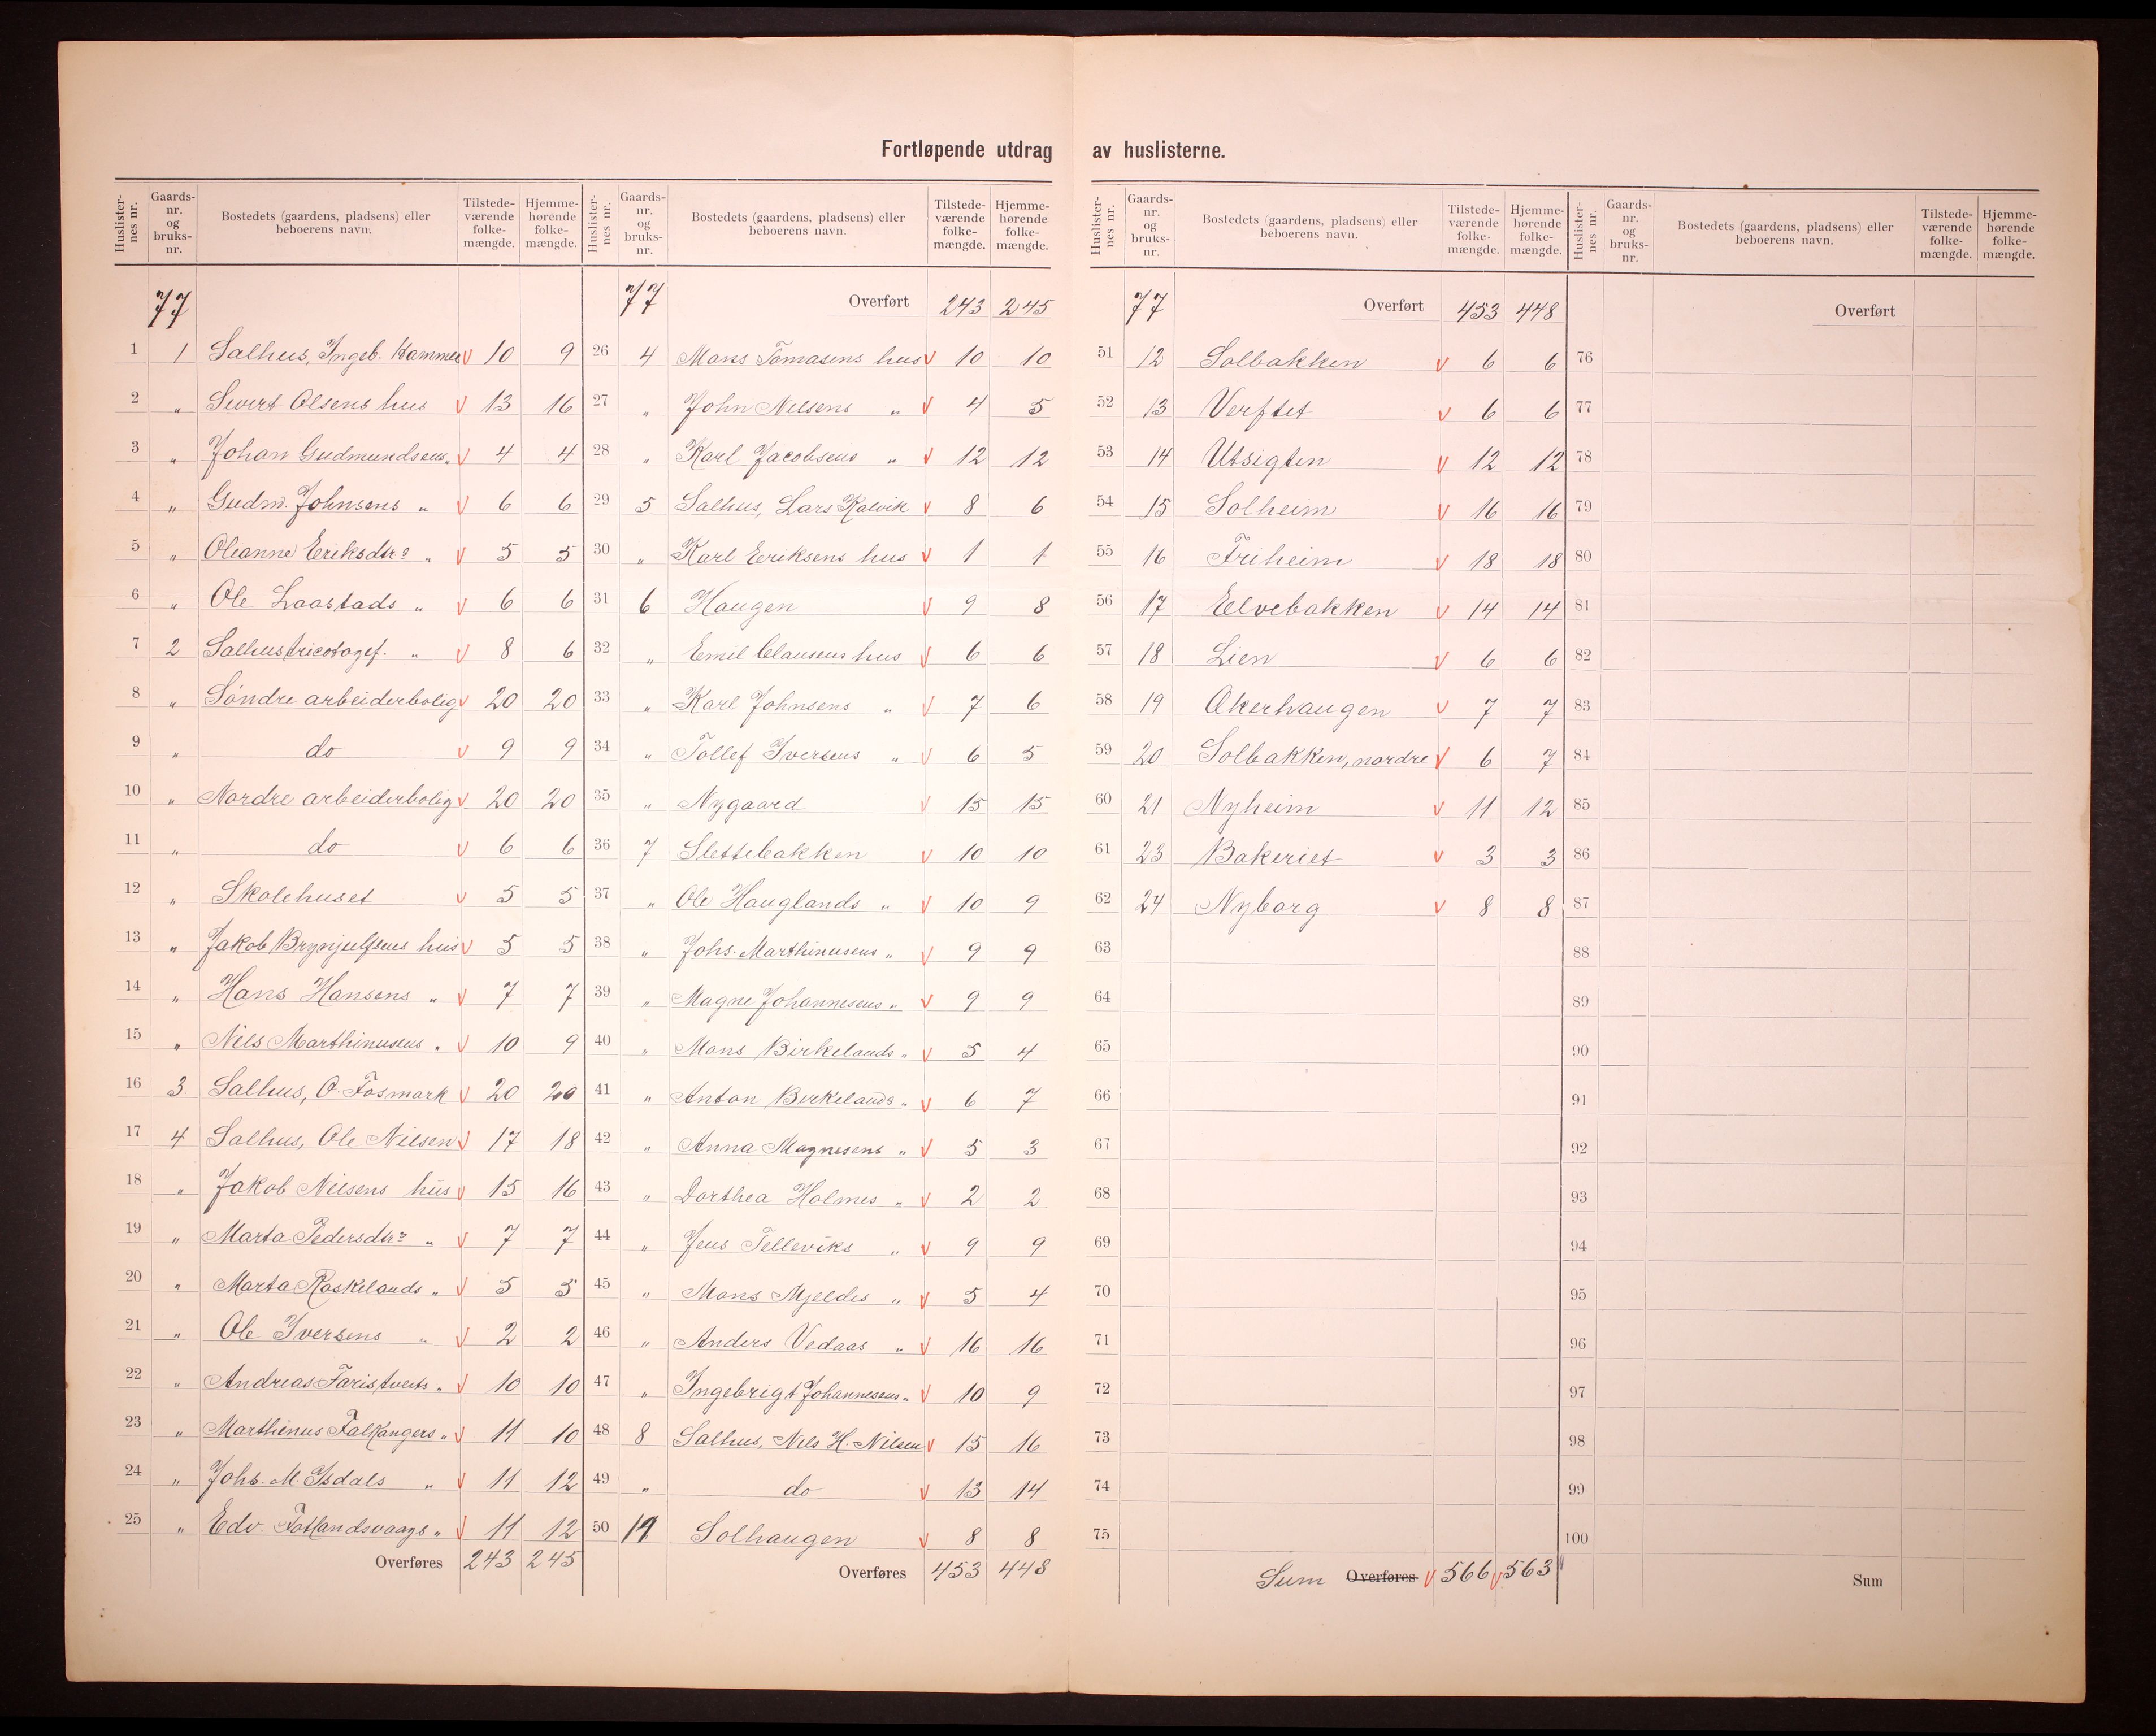 Fortløpende utdrag av huslisterne.
Huslister-nes nr. Gaards-nr. og bruks-nr. Bostedets (gaardens, pladsens) eller beboerens navn. Tilstede-værende folke-mængde. Hjemme-hørende folke-mængde.
77
1 1 Salhus, Ingeb. Hammer V 10 9
2 " Sivert Olsens hus V 13 16
3 " Johan Gudmundsens " V 4 4
4 " Gudm. Johnsens " V 6 6
5 " Olianne Eriksdtrs " V 5 5
6 " Ole Laastads " V 6 6
7 2 Salhus tricotagef. " V 8 6
8 " Söndre arbeiderbolig V 20 20
9 " do V 9 9
10 " Nordre arbeiderbolig V 20 20
11 " do V 6 6
12 " Skolehuset V 5 5
13 " Jakob Brynjulfsens hus V 5 5
14 " Hans Hansens " V 7 7
15 " Nils Marthinusens " V 10 9
16 3 Salhus, O. Fosmark V 20 20
17 4 Salhus, Ole Nilsen V 17 18
18 " Jakob Nilsens hus V 15 16
19 " Marta Pedersdtrs " V 7 7
20 " Marta Röskelands " V 5 5
21 " Ole Iversens " V 2 2
22 " Andreas Faristveits " V 10 10
23 " Marthinus Falkangers " V 11 10
24 " Johs. M. Isdals " V 11 12
25 " Edv. Totlandsvaags " V 11 12
Overføres 243 245
Huslister-nes nr. Gaards-nr. og bruks-nr. Bostedets (gaardens, pladsens) eller beboerens navn. Tilstede-værende folke-mængde. Hjemme-hørende folke-mængde.
77 Overført 243 245
26 4 Mons Tomasens hus V 10 10
27 " John Nilsens " V 4 5
28 " Karl Jacobsens " V 12 12
29 5 Salhus, Lars Kalvik V 8 6
30 " Karl Eriksens hus V 1 1
31 6 Haugen V 9 8
32 " Emil Clausens hus V 6 6
33 " Karl Johnsens " V 7 6
34 " Tollef Iversens " V 6 5
35 " Nygaard V 15 15
36 7 Slettebakken V 10 10
37 " Ole Hauglands " V 10 9
38 " Johs. Marthinusens " V 9 9
39 " Magne Johannesens " V 9 9
40 " Mons Birkelands " V 5 4
41 " Anton Birkelands " V 6 7
42 " Anna Magnesens " V 5 3
43 " Dorthea Holmes " V 2 2
44 " Jens Telleviks " V 9 9
45 " Mons Mjeldes " V 5 4
46 " Anders Vedaas " V 16 16
47 " Ingebrigt Johannesens " V 10 9
48 8 Salhus, Nils H. Nilsen V 15 16
49 " do V 13 14
50 11 Solhaugen V 8 8
Overføres 453 448
Huslister-nes nr. Gaards-nr. og bruks-nr. Bostedets (gaardens, pladsens) eller beboerens navn. Tilstede-værende folke-mængde. Hjemme-hørende folke-mængde.
77 Overført 453 448
51 12 Solbakken V 6 6
52 13 Verftet V 6 6
53 14 Utsigten V 12 12
54 15 Solheim V 16 16
55 16 Friheim V 18 18
56 17 Elvebakken V 14 14
57 18 Lien V 6 6
58 19 Akerhaugen V 7 7
59 20 Solbakken, nordre V 6 7
60 21 Nyheim V 11 12
61 23 Bakeriet V 3 3
62 24 Nyborg V 8 8
63
64
65
66
67
68
69
70
71
72
73
74
75
Sum Overføres V 566 V 563
Huslister-nes nr. Gaards-nr. og bruks-nr. Bostedets (gaardens, pladsens) eller beboerens navn. Tilstede-værende folke-mængde. Hjemme-hørende folke-mængde.
Overført
76
77
78
79
80
81
82
83
84
85
86
87
88
89
90
91
92
93
94
95
96
97
98
99
100
Sum